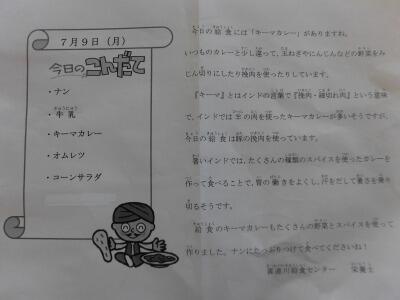 7月9日(月)
今日のこんだて
・ナン
・牛乳
・キーマカレー
・オムレツ
・コーンサラダ
今日の給食には「キーマカレー」がありますね。
いつものカレーと少し違って、玉ねぎやにんじんなどの野菜をみ
じん切りにしたり挽肉を使ったりしています。
『キーマ』とはインドの言葉で『挽肉・細切れ肉』という意味
で、インドでは羊の肉を使ったキーマカレーが多いそうですが、
今日の給食は豚の挽肉を使っています。
暑いインドでは、たくさんの種類のスパイスを使ったカレーを
作って食べることで、胃の働きをよくし、汗をだして暑さを乗り
切るそうです。
給食のキーマカレーもたくさんの野菜とスパイスを使って
作りました。ナンにたっぷりつけて食べてくださいね!
喜連川給食センター 栄養士